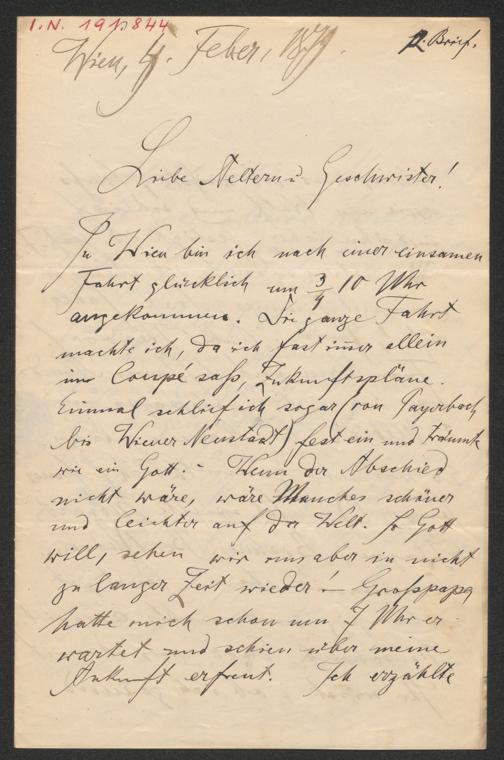 I.N. 191.844
2. Brief.
Wien, 4. Feber, 1879.
Liebe Aeltern u. Geschwister!
In Wien bin ich nach einer einsamen
Fahrt glücklich um 3/4 10 Uhr
angekommen. Die ganze Fahrt
machte ich, da ich fast im̅er allein
im Coupé saß, Zukunftspläne.
Einmal schlief ich sogar (von Payerbach
bis Wiener Neustadt) fest ein und träumte
wie ein Gott. – Wenn der Abschied
nicht wäre, wäre Manches schöner
und leichter auf der Welt. So Gott
will, sehen wir uns aber in nicht
zu langer Zeit wieder! – Großpapa
hatte mich schon um 7 Uhr er
wartet und schien über meine
Ankunft erfreut. Ich erzählte